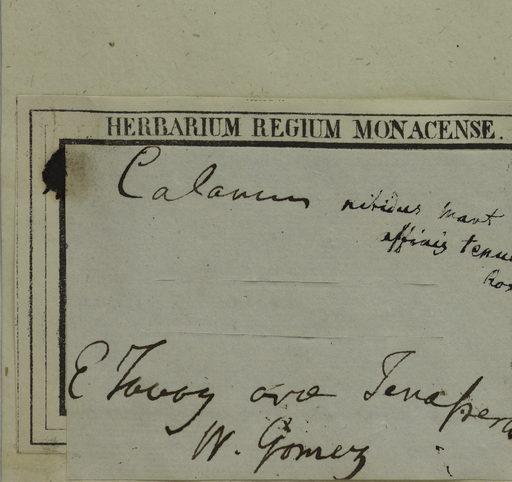 HERBARIUM REGIUM MONACENSE.
Calamus nitidus Mart
affinis tenui
Rox
E Tavoy ora Tenasseri
W. Gomez